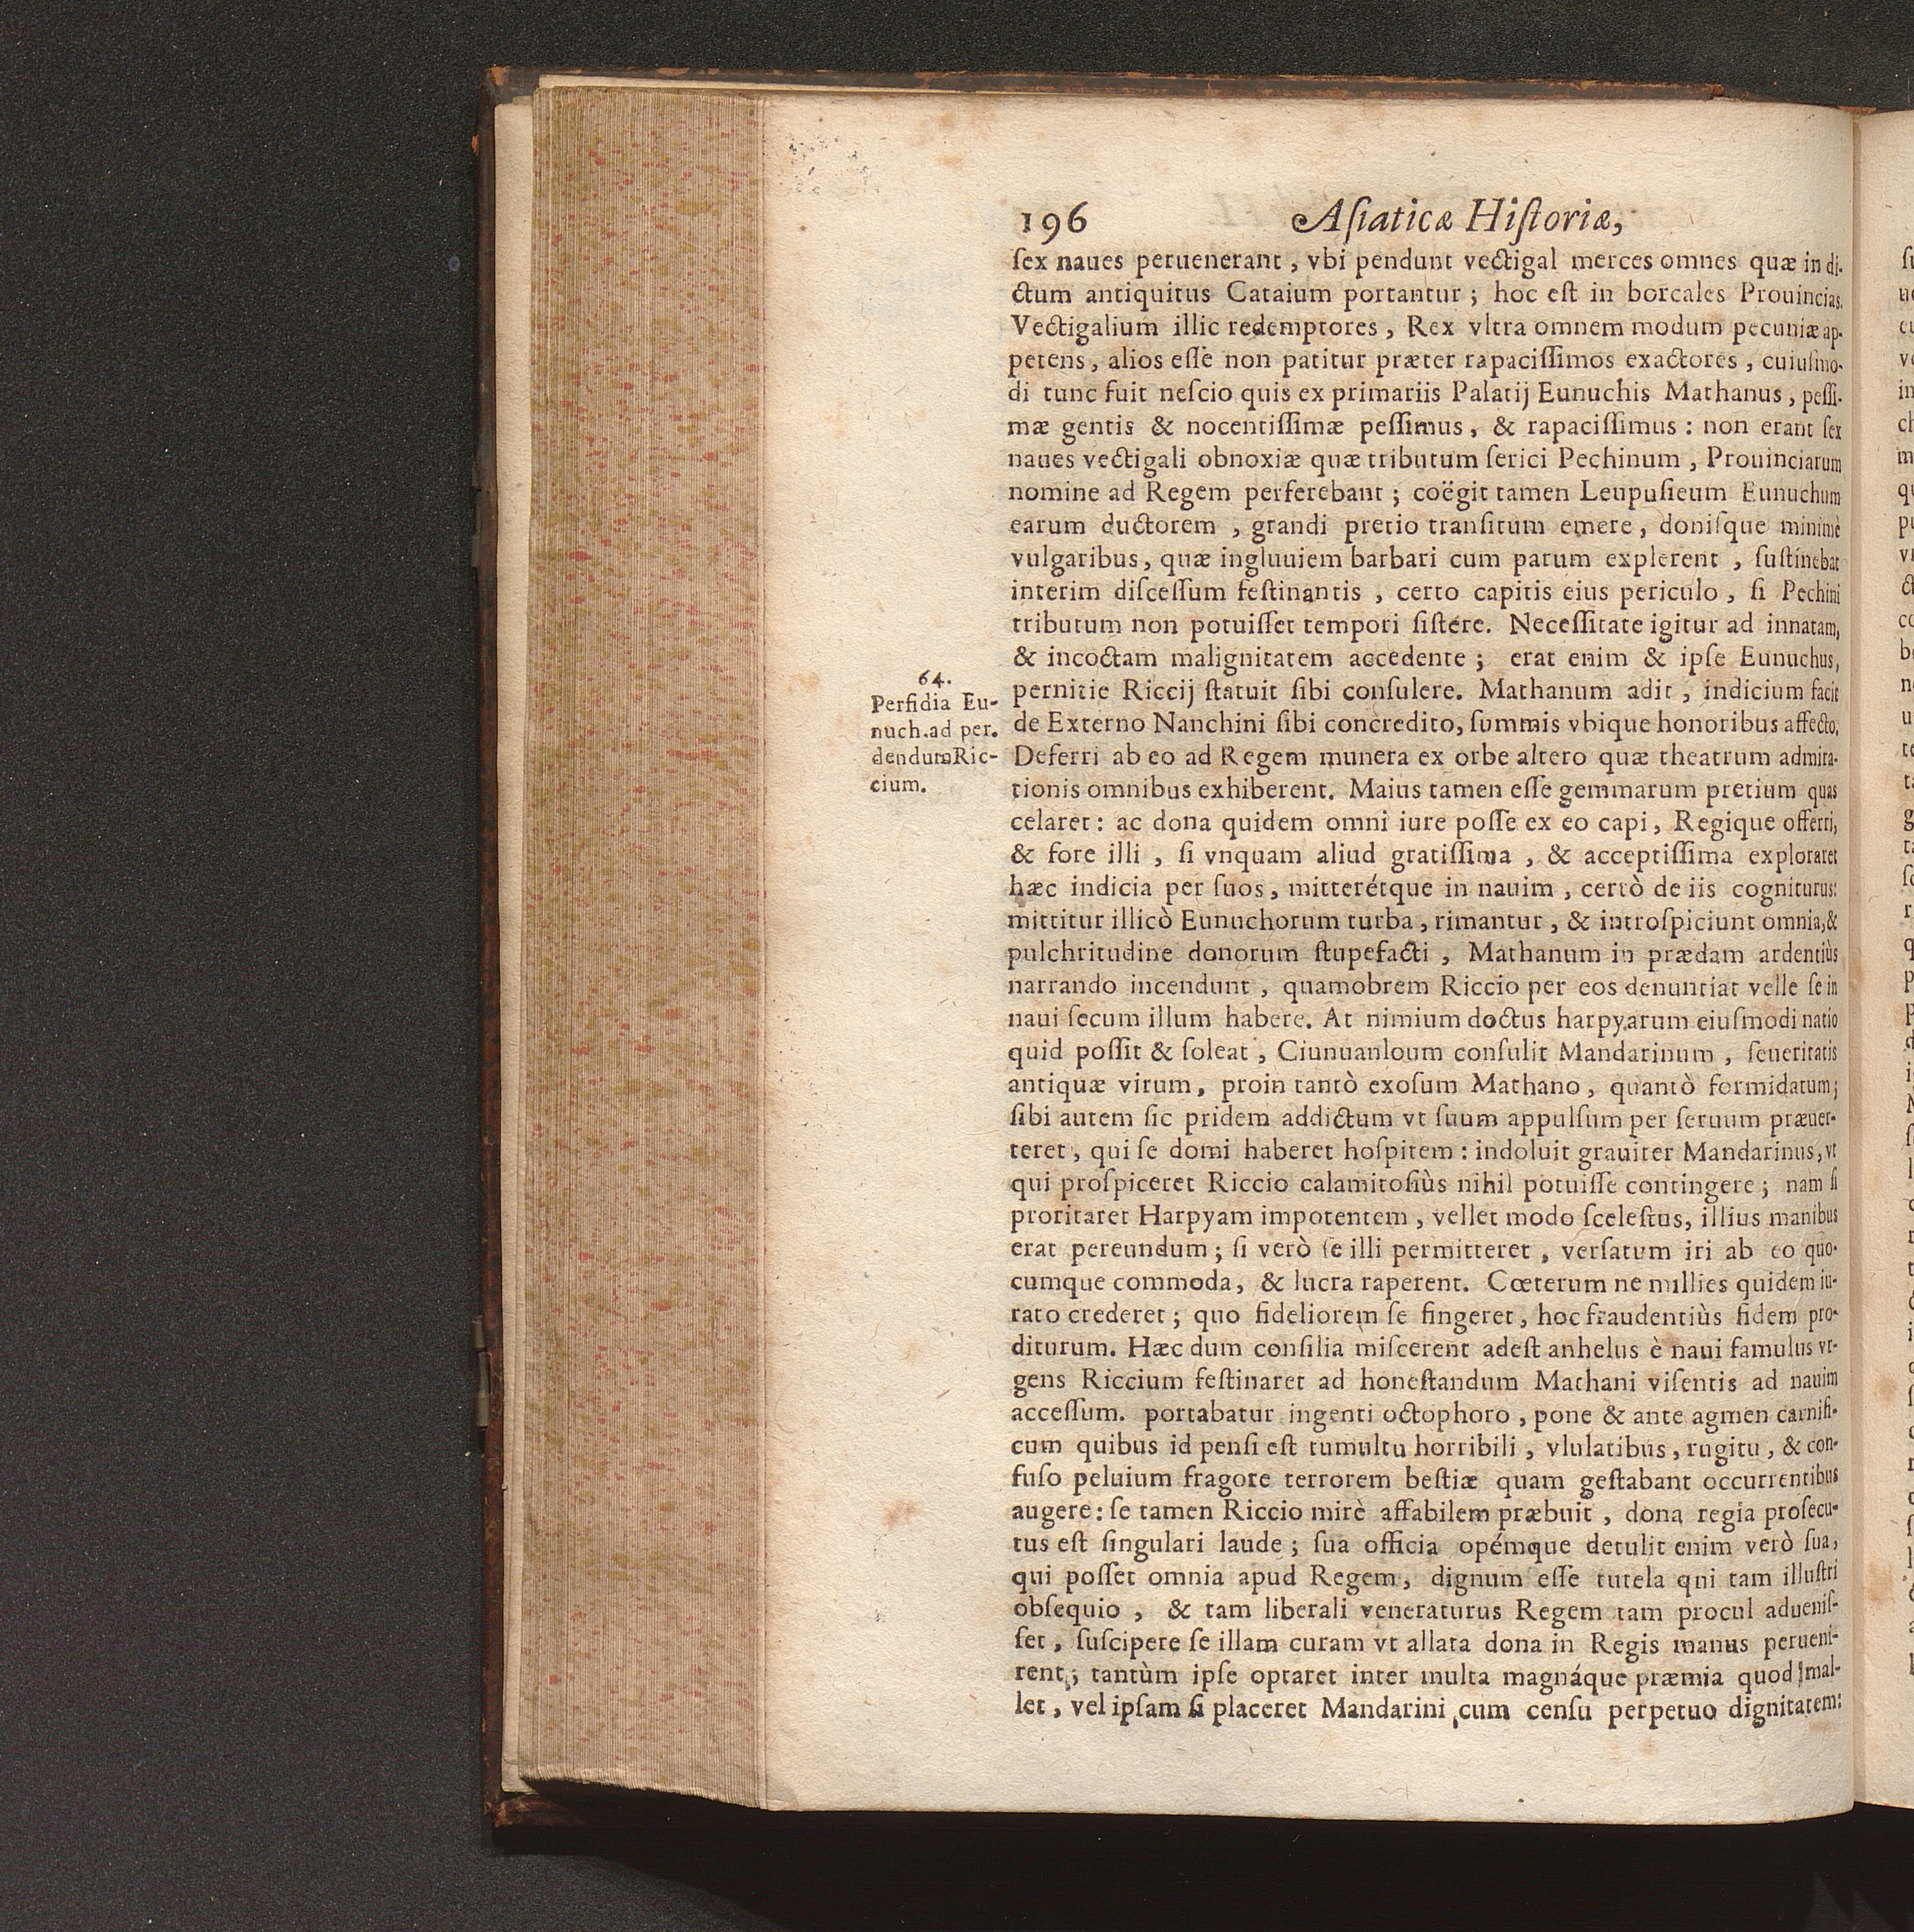 196 Aſiaticæ Hiſtoriæ,
ſex naues peruenerant, vbi pendunt vectigal merces omnes quæ in di-
ctum antiquitus Cataium portantur; hoc eſt in boreales Prouincias.
Vectigalium illic redemptores, Rex vltra omnem modum pecuniæ ap-
petens, alios eſſe non patitur præter rapaciſſimos exactores, cuiuſmo-
di tunc fuit neſcio quis ex primariis Palatij Eunuchis Mathanus, peſſi-
mæ gentis & nocentiſſimæ peſſimus, & rapaciſſimus: non erant ſex
naues vectigali obnoxiæ quæ tributum ſerici Pechinum, Prouinciarum
nomine ad Regem perferebant; coëgit tamen Leupuſieum Eunuchum
earum ductorem, grandi pretio tranſitum emere, doniſque minimè
vulgaribus, quæ ingluuiem barbari cum parum explerent, ſuſtinebat
interim diſceſſum feſtinantis, certo capitis eius periculo, ſi Pechini
tributum non potuiſſet tempori ſiſtere. Neceſſitate igitur ad innatam,
& incoctam malignitatem accedente; erat enim & ipſe Eunuchus,
64.
Perfidia Eu-
nuch.ad per-
dendum Ric-
cium.
pernitie Riccij ſtatuit ſibi conſulere. Mathanum adit, indicium facit
de Externo Nanchini ſibi concredito, ſummis vbique honoribus affecto,
Deferri ab eo ad Regem munera ex orbe altero quæ theatrum admira-
tionis omnibus exhiberent. Maius tamen eſſe gemmarum pretium quas
celaret: ac dona quidem omni iure poſſe ex eo capi, Regique offerri,
& fore illi, ſi vnquam aliud gratiſſima, & acceptiſſima exploraret
hæc indicia per ſuos, mitterétque in nauim, certò de iis cogniturus:
mittitur illicò Eunuchorum turba, rimantur, & introſpiciunt omnia, &
pulchritudine donorum ſtupefacti, Mathanum in prædam ardentiùs
narrando incendunt, quamobrem Riccio per eos denuntiat velle ſe in
naui ſecum illum habere. At nimium doctus harpyarum eiuſmodi natio
quid poſſit & ſoleat, Ciunuanloum conſulit Mandarinum, ſeueritatis
antiquæ virum, proin tantò exoſum Mathano, quantò formidatum;
ſibi autem ſic pridem addictum vt ſuum appulſum per ſeruum præuer-
teret, qui ſe domi haberet hoſpitem: indoluit grauiter Mandarinus, vt
qui proſpiceret Riccio calamitoſiùs nihil potuiſſe contingere; nam ſi
proritaret Harpyam impotentem, vellet modo ſceleſtus, illius manibus
erat pereundum; ſi verò ſe illi permitteret, verſatum iri ab eo quo-
cumque commoda, & lucra raperent. Cœterum ne millies quidem iu-
rato crederet; quo fideliorem ſe fingeret, hoc fraudentiùs fidem pro-
diturum. Hæc dum conſilia miſcerent adeſt anhelus è naui famulus vr-
gens Riccium feſtinaret ad honeſtandum Mathani viſentis ad nauim
acceſſum. portabatur ingenti octophoro, pone & ante agmen carnifi-
cum quibus id penſi eſt tumultu horribili, vlulatibus, rugitu, & con-
fuſo peluium fragore terrorem beſtiæ quam geſtabant occurrentibus
augere: ſe tamen Riccio mirè affabilem præbuit, dona regia proſecu-
tus eſt ſingulari laude; ſua officia opémque detulit enim verò ſua,
qui poſſet omnia apud Regem, dignum eſſe tutela qui tam illuſtri
obſequio, & tam liberali veneraturus Regem tam procul adueniſ-
ſet, ſuſcipere ſe illam curam vt allata dona in Regis manus perueni-
rent; tantùm ipſe optaret inter multa magnáque præmia quod mal-
let, vel ipſam ſi placeret Mandarini cum cenſu perpetuo dignitatem: